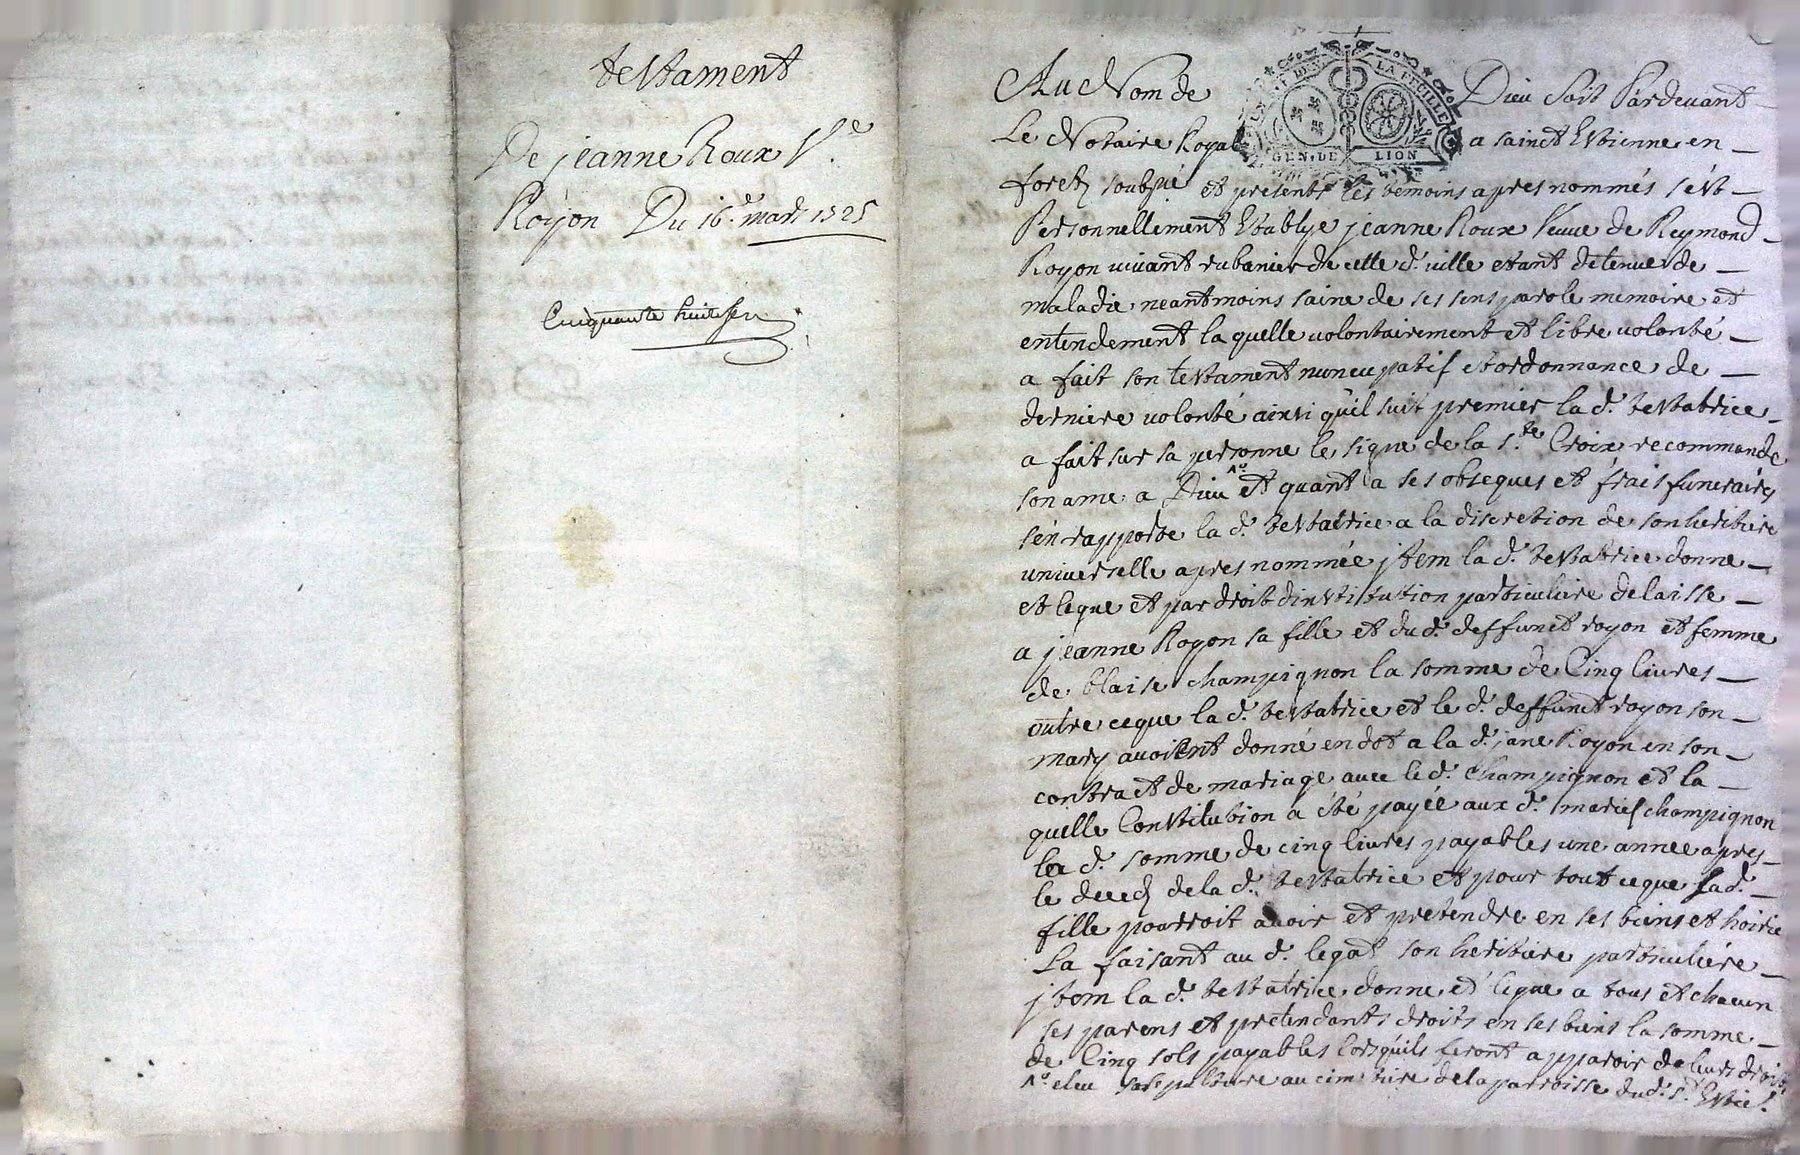 testament
De jeanne Roux V.e
Royon Du 16.e mars 1725
Cinquante huit
Au Nom de Dieu Soit Pardevant
Le Notaire Royal a sainct Estienne en
foretz soubsné et presents les temoins apres nommés s'est
Personnellement Establye jeanne Roux veuve de Reymond
Royon vivant rubanier de cette d. ville etant detenue de
maladie neantmoins saine de ses sens parole memoire et
entendement la quelle volontairement et libre volonté
a fait son testament nuncupatif et ordonnance de
derniere volonté ainsi qu'il suit premier la d. testatrice
a fait sur sa personne le signe de la s.te Croix recommande
son ame a Dieu et quant a ses obseques et frais funeraires
s'en rapporte la d. testatrice a la discretion de son heritiere
universelle apres nommée jtem la d. testatrice donne
et legue et par droit d'institution particuliere delaisse
a jeanne Royon sa fille et dud. deffunct royon et femme
de blaise champignon la somme de Cinq livres
outre ce que la d. testatrice et le d. deffunct royon son
mary avoient donné en dot a la d. jane Royon en son
contract de mariage avec le d. Champignon et la
quelle Constitution a été payée aux d. mariés champignon
la d. somme de cinq livres payables une annee apres
le deces de la d. testatrice et pour tout ce que sa d.
fille pourroit avoir et pretendre en ses biens et hoirie
La faisant au d. legat son heritiere particuliere
jtem la d. testatrice donne et legue a tous et chacun
ses parens et pretendants droits en ses biens la somme
de Cinq sols payables lorsqu'ils feront apparoir de leurs droits
eleu sa sepulture au cimetiere de la parroisse dud. s.t Estie.
GEN. DE LION
LA FEUILLE